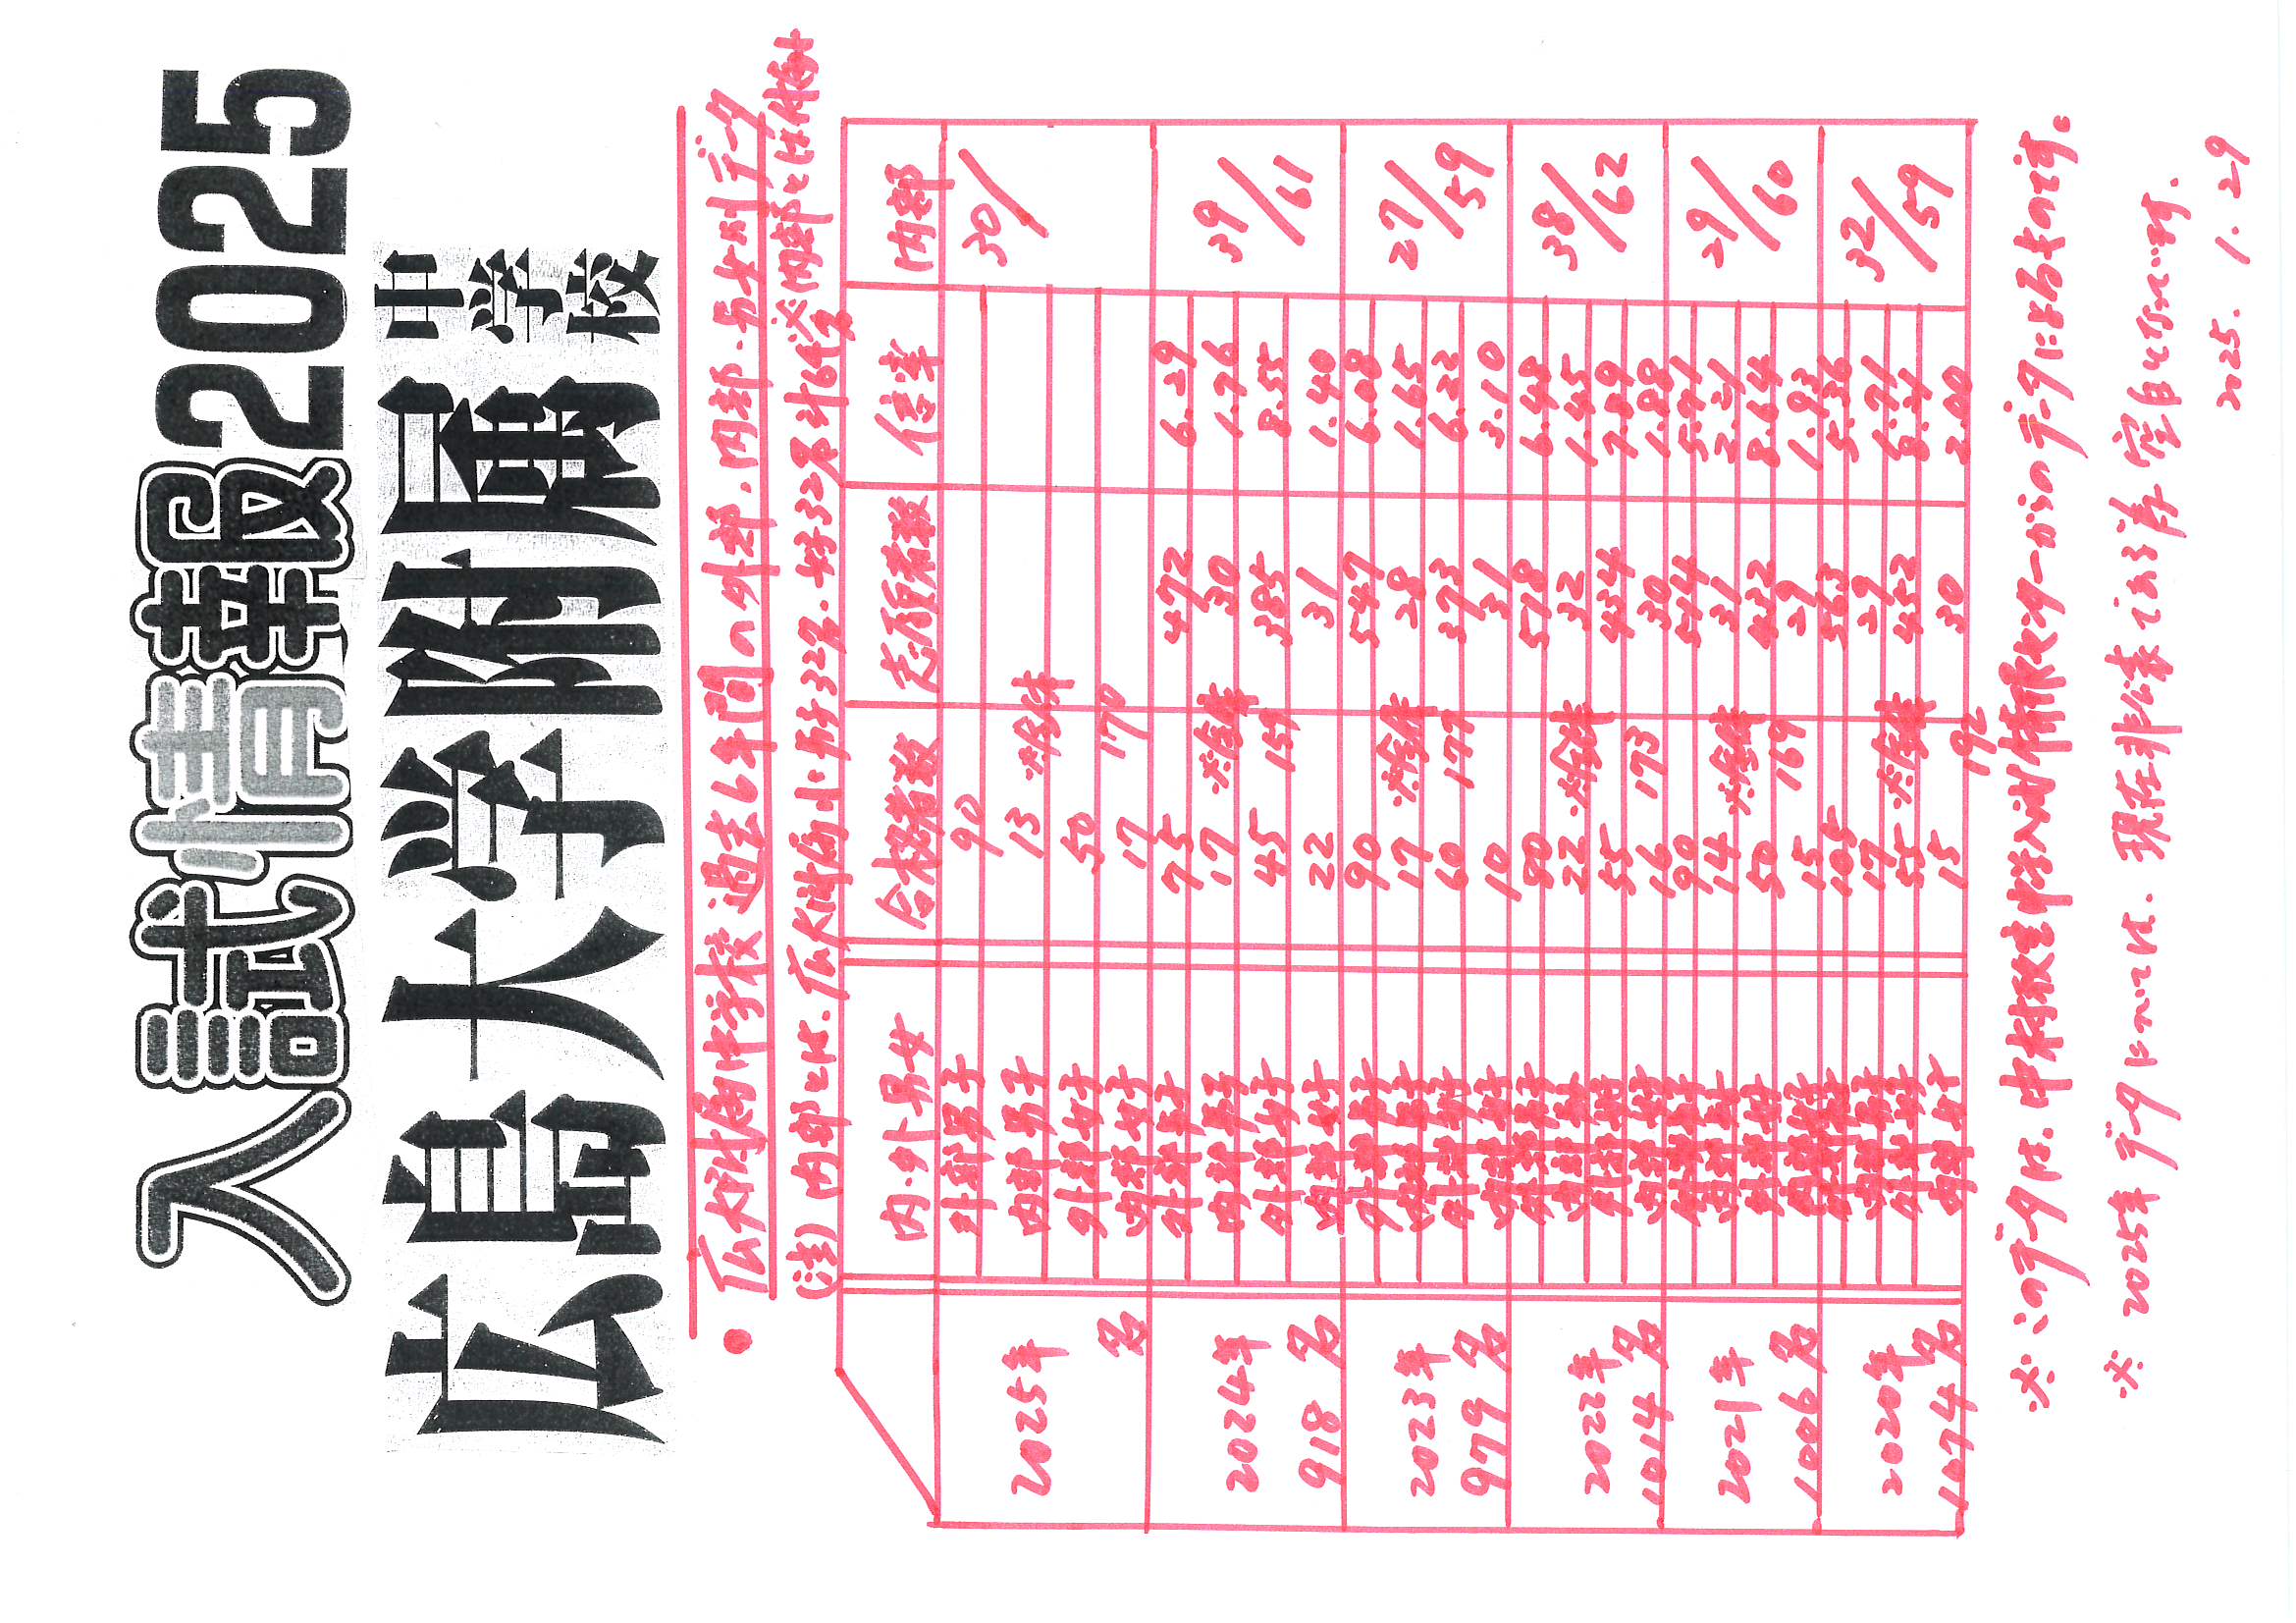 入試情報2025
広島大学附属中学校
● 広大附属中学校 過去6年間の外部、内部、男女別データ
(注) 内部とは、広大附属小(男子32名、女子32名 計64名) ※内部と比較
内・外 男女 合格者数 志願者数 倍率 内部
2025年 名
外部男子 90
内部男子 13
外部女子 50
内部女子 17
※全体 170
30/
2024年 918名
外部男子 75 472 6.29
内部男子 17 30 1.76
外部女子 45 385 8.55
内部女子 22 31 1.40
※全体 159
39/61
2023年 979名
外部男子 90 547 6.08
内部男子 17 28 1.65
外部女子 60 373 6.22
内部女子 10 31 3.10
※全体 177
27/59
2022年 1014名
外部男子 80 518 6.48
内部男子 22 32 1.45
外部女子 55 434 7.89
内部女子 16 30 1.88
※全体 173
38/62
2021年 1006名
外部男子 90 514 5.71
内部男子 14 31 2.21
外部女子 50 432 8.64
内部女子 15 29 1.93
※全体 169
29/60
2020年 1074名
外部男子 105 563 5.36
内部男子 17 29 1.71
外部女子 55 452 8.21
内部女子 15 30 2.00
※全体 192
32/59
※このデータは、中村敏生中学入試情報センターからのデータによるものです。
※ 2025年データについては、現在非公表につき、空白となっています。
2025. 1. 29